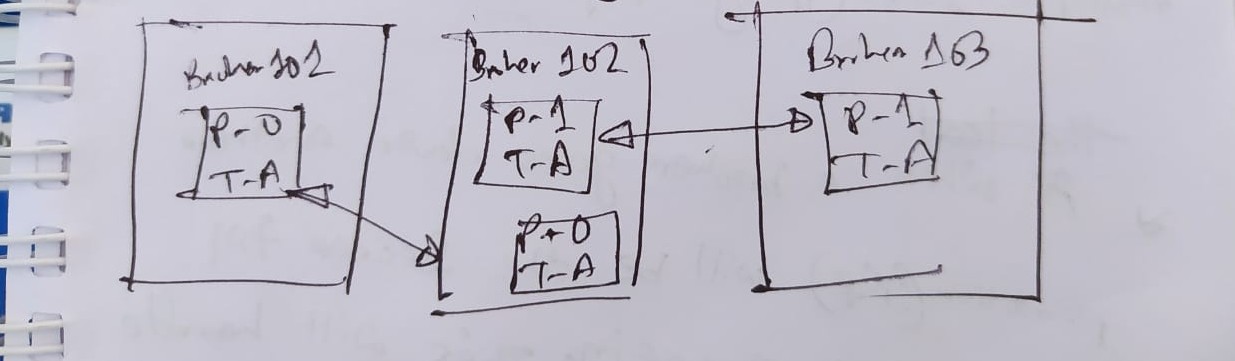 Broker 101
P-0
T-A
Broker 102
P-1
T-A
P-0
T-A
Broker 103
P-1
T-A